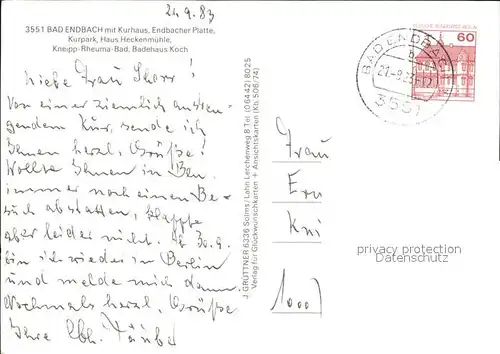 24.9.83
3551 BAD ENDBACH mit Kurhaus, Endbacher Platte,
Kurpark, Haus Heckenmühle,
Kneipp-Rheuma-Bad, Badehaus Koch
Liebe Frau
Von einer ziemlich anstren-
gendem Kur, sende ich
Ihnen herzl. Grüße!
Wollte Ihnen in
immer noch einen Be-
such abstatten, klappte
aber leider nicht. Ab 30.9.
bin ich wieder in Berlin
und melde mich dann.
Nochmals herzl. Grüße
Ihre
J. GRÜTTNER 6336 Solms/Lahn Lerchenweg 8 Tel. (06442) 8025
Verlag für Glückwunschkarten + Ansichtskarten (Kb. 506/74)
DEUTSCHE BUNDESPOST BERLIN
60
BAD ENDBACH
3551
Frau
1000
privacy protection
Datenschutz